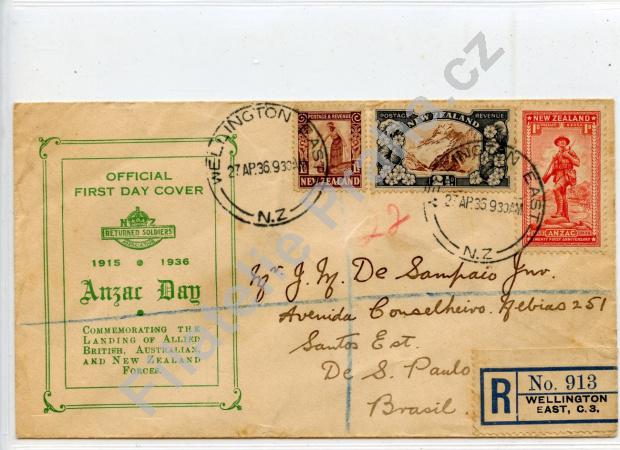 OFFICIAL
FIRST DAY COVER
N Z
RETURNED SOLDIERS
ASSOCIATION
1915 • 1936
Anzac Day
COMMEMORATING THE
LANDING OF ALLIED
BRITISH, AUSTRALIAN,
AND NEW ZEALAND
FORCES.
WELLINGTON EAST
27 AP.36 9 30AM
N.Z
POSTAGE & REVENUE
NEW ZEALAND
POSTAGE REVENUE
NEW ZEALAND
WELLINGTON EAST
27 AP.36 9 30AM
N.Z
NEW ZEALAND
1D 1D
ANZAC
TWENTY FIRST ANNIVERSARY
Mr J. M. De Sampaio Jnr.
Avenida Conselheiro Nebias 251
Santos Est.
De S. Paulo
Brasil.
R No. 913
WELLINGTON
EAST, C.3.
Filatelie Praha.cz